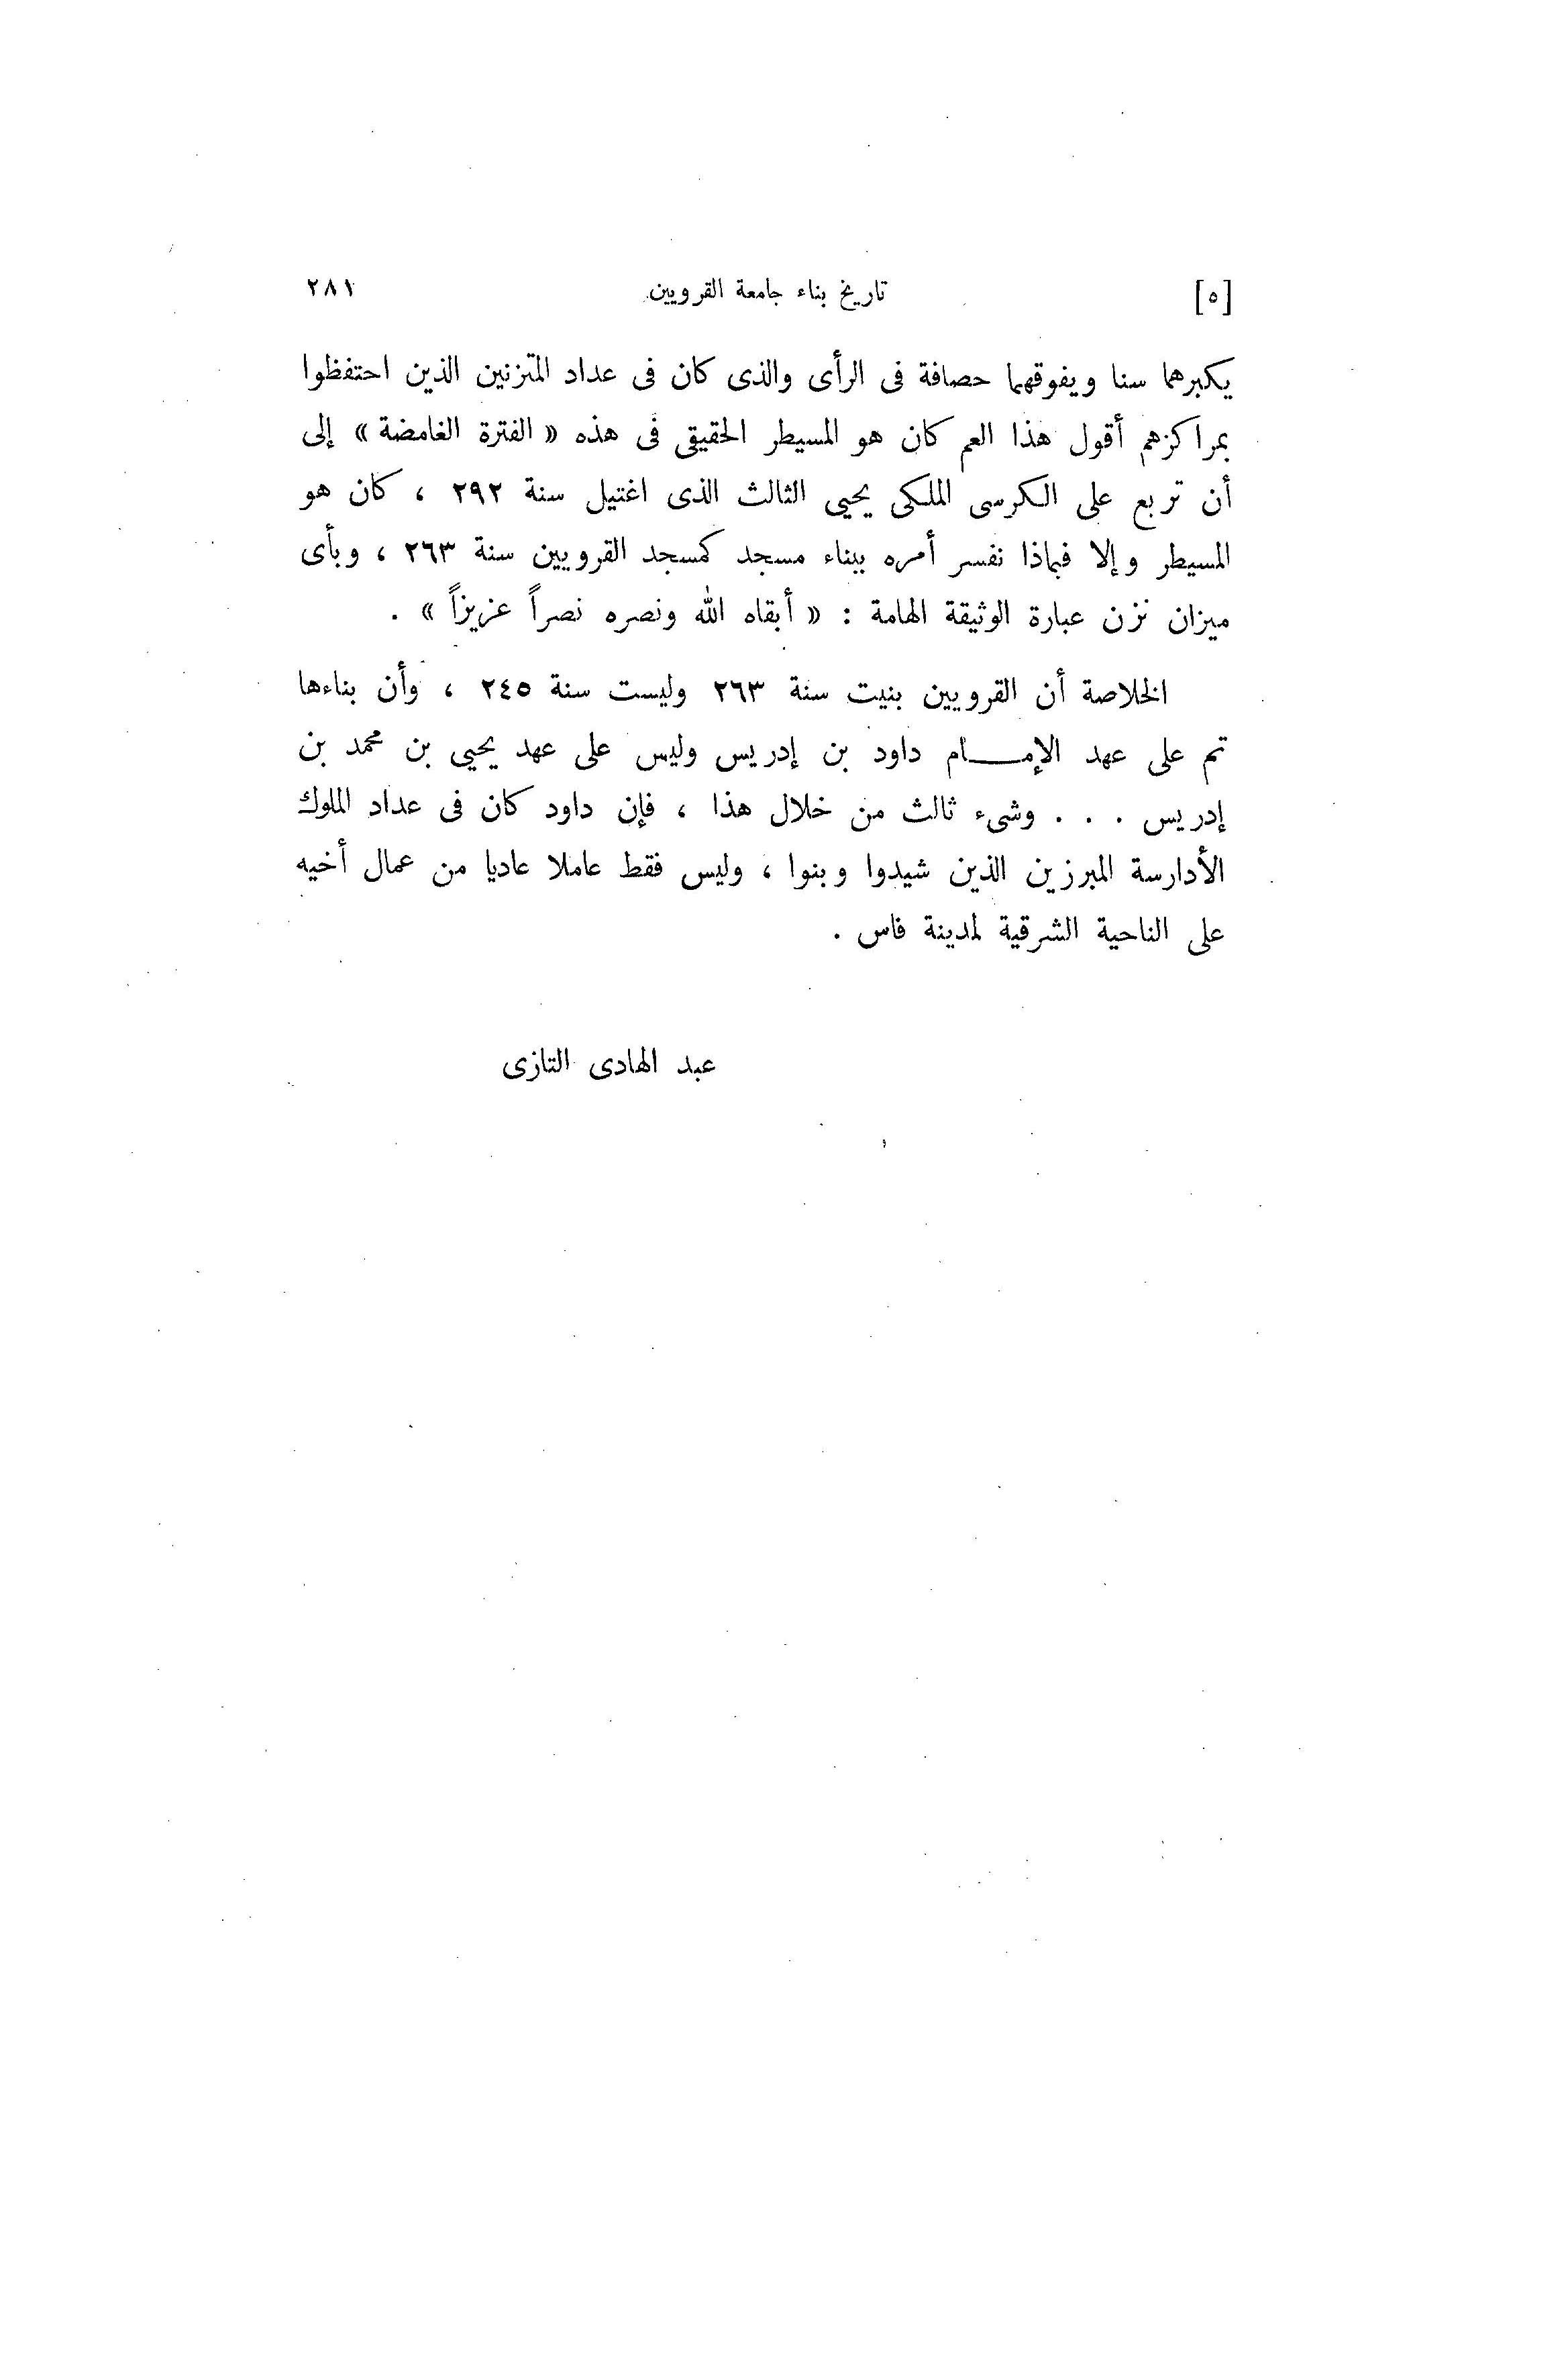 [٥] تاريخ بناء جامعة القرويين ٢٨١
يكبرهما سنا ويفوقهما حصافة فى الرأى والذى كان فى عداد المتزنين الذين احتفظوا
بمراكزهم أقول هذا العم كان هو المسيطر الحقيقى فى هذه « الفترة الغامضة » إلى
أن تربع على الكرسى الملكى يحيى الثالث الذى اغتيل سنة ٢٩٢ ، كان هو
المسيطر وإلا فبماذا نفسر أمره ببناء مسجد كمسجد القرويين سنة ٢٦٣ ، وبأى
ميزان نزن عبارة الوثيقة الهامة : « أبقاه الله ونصره نصراً عزيزاً » .
الخلاصة أن القرويين بنيت سنة ٢٦٣ وليست سنة ٢٤٥ ، وأن بناءها
تم على عهد الإمــــام داود بن إدريس وليس على عهد يحيى بن محمد بن
إدريس . . . وشىء ثالث من خلال هذا ، فإن داود كان فى عداد الملوك
الأدارسة المبرزين الذين شيدوا وبنوا ، وليس فقط عاملا عاديا من عمال أخيه
على الناحية الشرقية لمدينة فاس .
عبد الهادى التازى